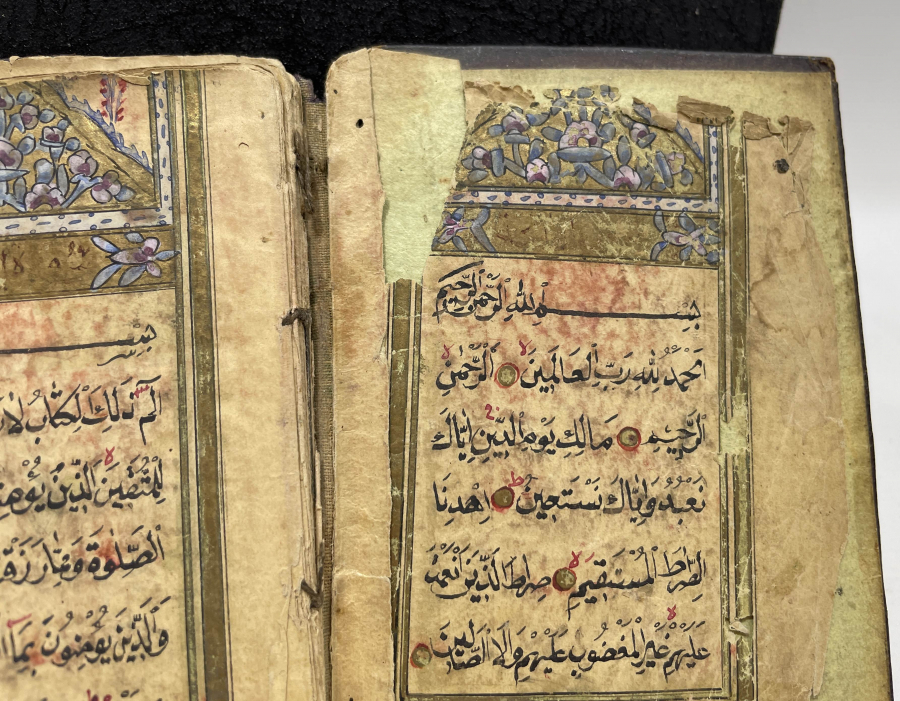 بِسْمِ ٱللَّهِ ٱلرَّحْمَٰنِ ٱلرَّحِيمِ
اَلْحَمْدُ لِلّٰهِ رَبِّ الْعَالَمِينَ لا اَلرَّحْمٰنِ
الرَّحِيمِ مَالِكِ يَوْمِ الدِّينِ اِيَّاكَ
نَعْبُدُ وَاِيَّاكَ نَسْتَعِينُ ط اِهْدِنَا
الصِّرَاطَ الْمُسْتَقِيمَ لا صِرَاطَ الَّذِينَ اَنْعَمْتَ
عَلَيْهِمْ غَيْرِ الْمَغْضُوبِ عَلَيْهِمْ وَلَا الضَّالِّينَ
بِسْمِ
الٓمٓ ذٰلِكَ الْكِتَابُ لَا
لِلْمُتَّقِينَ لا اَلَّذِينَ يُؤْمِنُ
الصَّلٰوةَ وَمِمَّا رَزَقْ
وَالَّذِينَ يُؤْمِنُونَ بِمَا